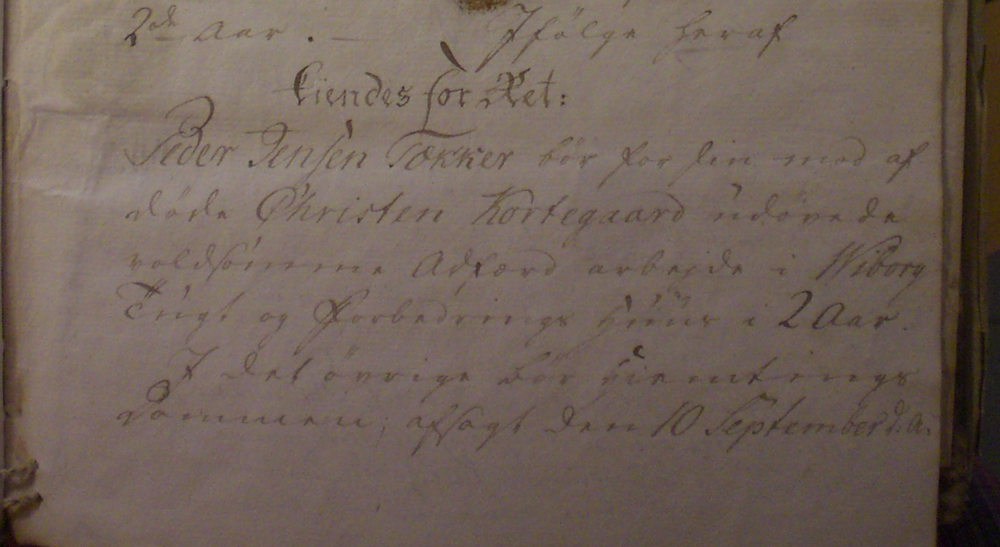 2de Aar. – Ifølge heraf
kiendes for Ret:
Peder Jensen Tækker bør for sin mod af
døde Christen Kortegaard udøvede
voldsomme Adfærd arbejde i Wiborg
Tugt og Forbedrings Huus i 2 Aar.
I det øvrige bør Hiemtings
Dommen, afsagt den 10 September d: A: